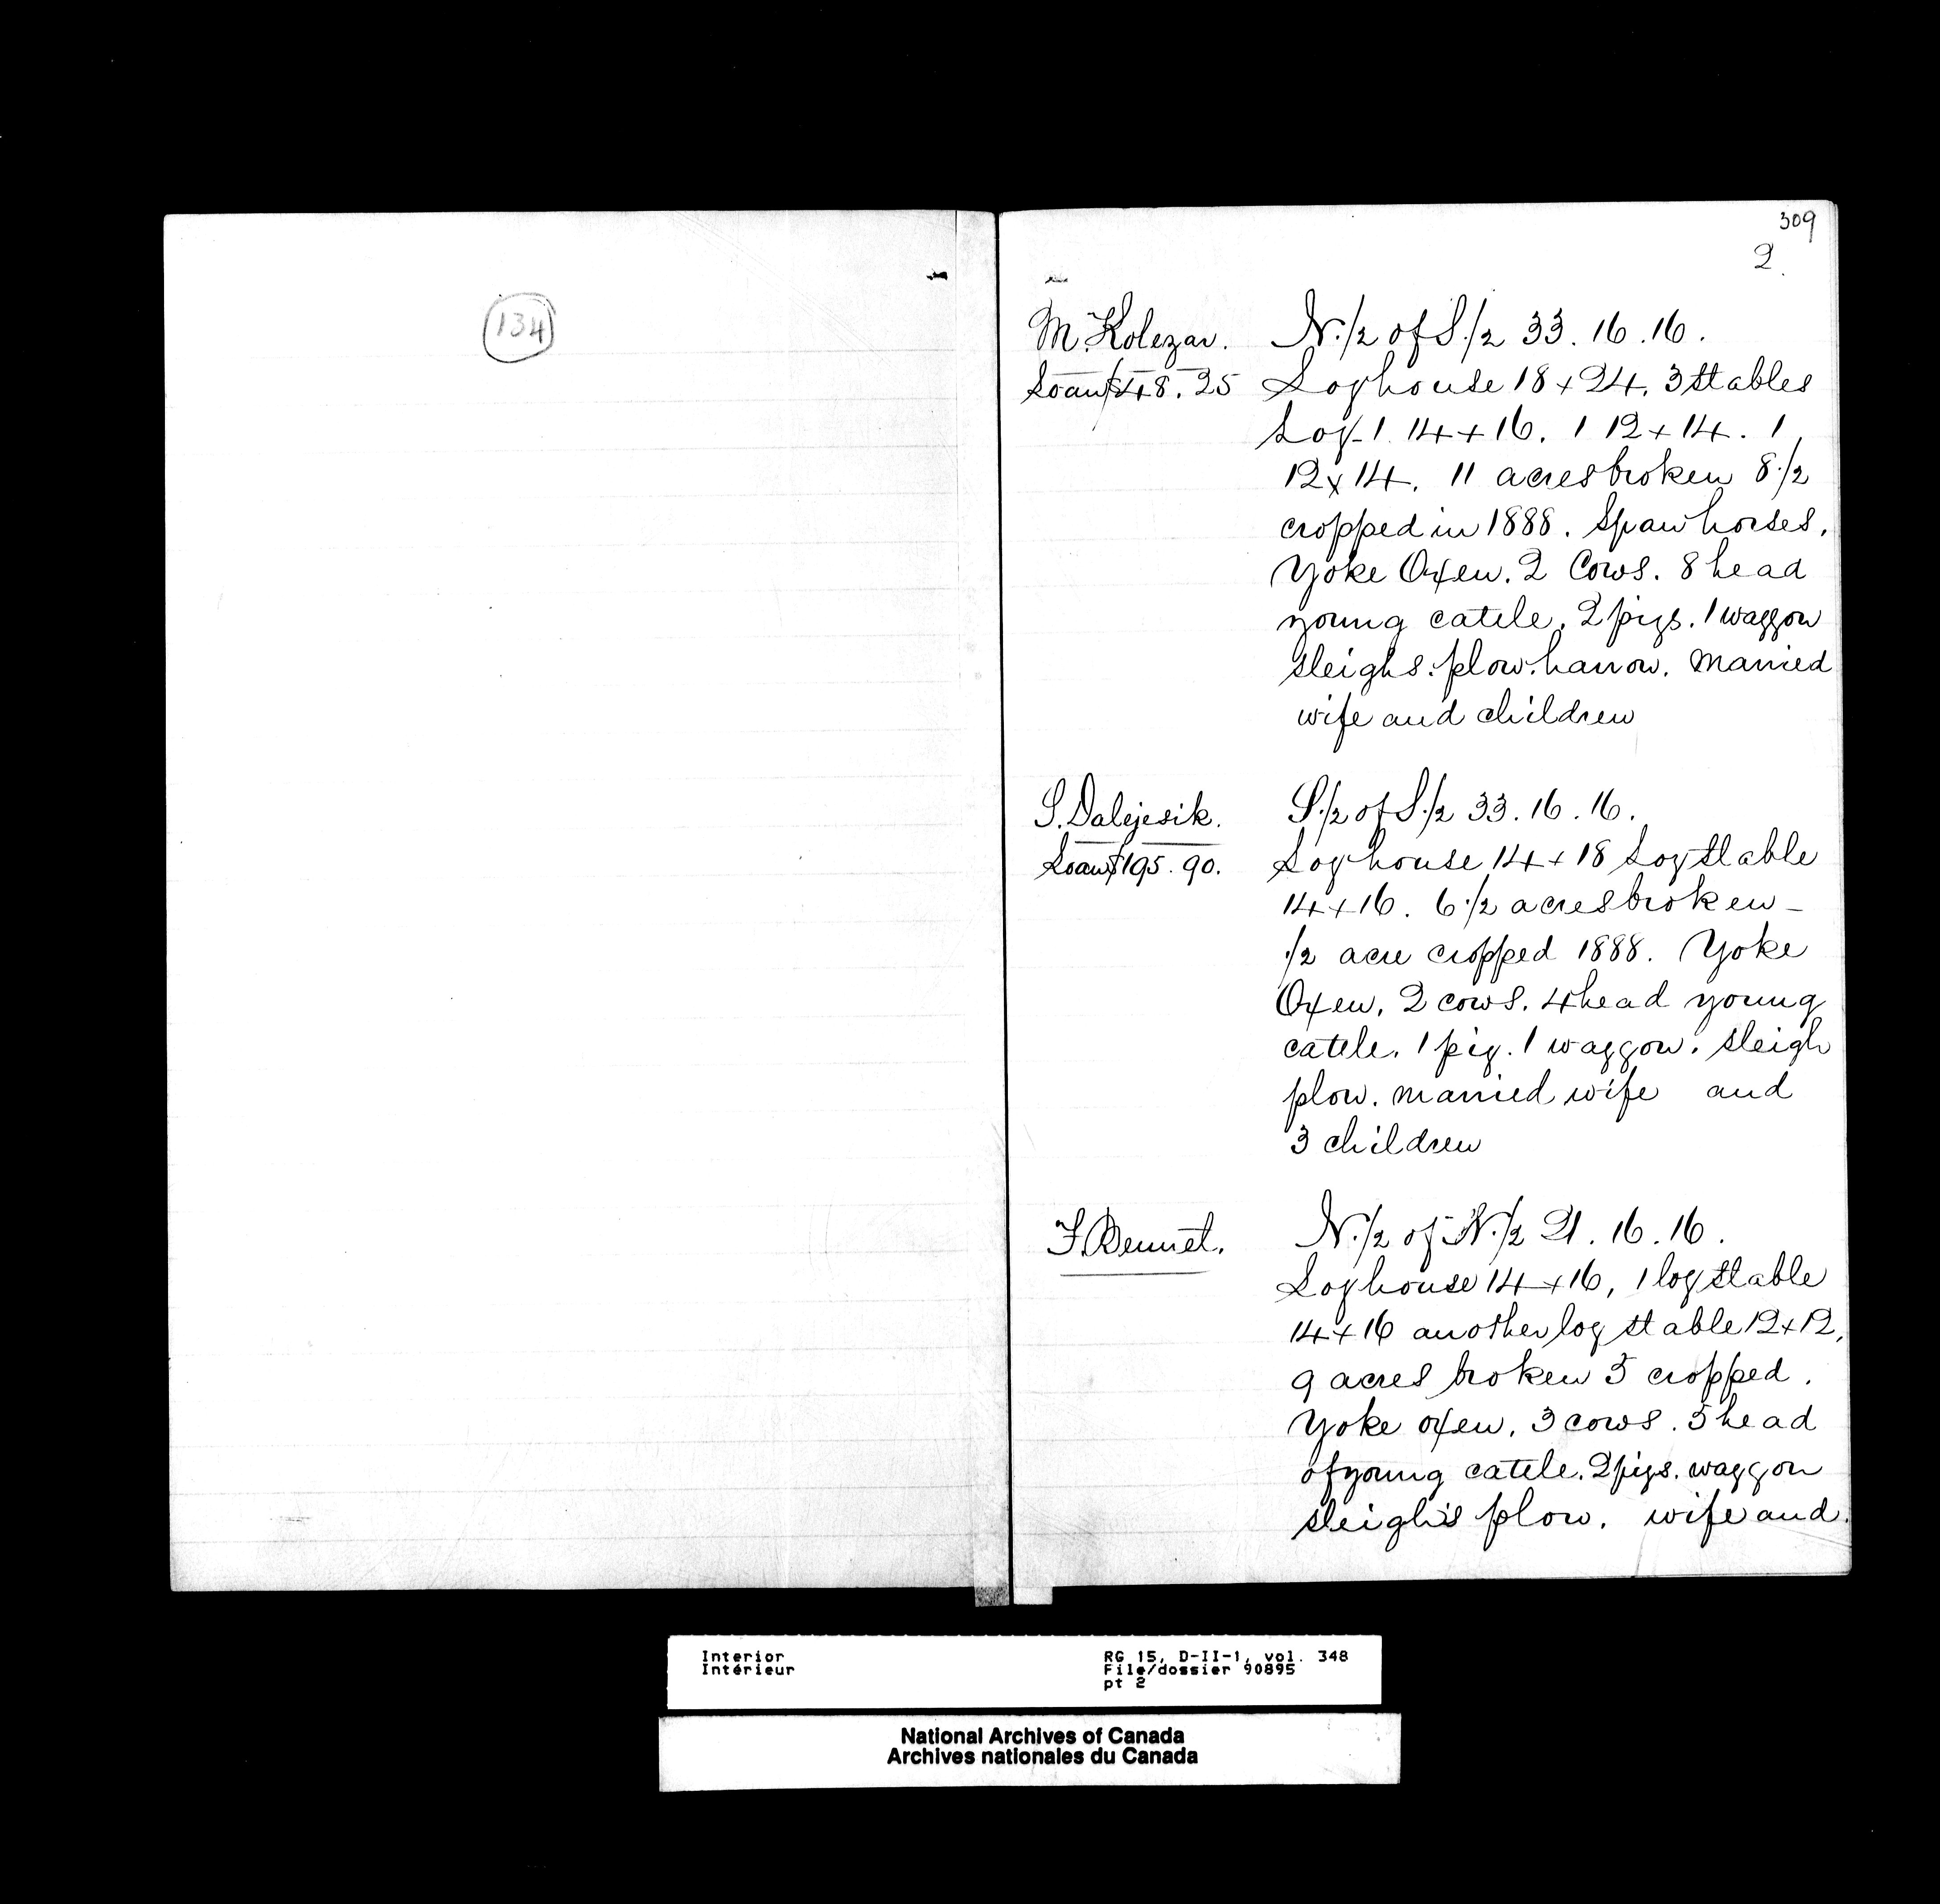 134
309
2.
M. Kolezar. N.1/2 of S.1/2 33.16.16.
Loan $48.25 Loghouse 18 x 24. 3 stables
Log-1 14 x 16. 1 12 x 14. 1
12 x 14. 11 acres broken 8 1/2
cropped in 1888. Span horses.
Yoke Oxen. 2 Cows. 8 head
young cattle. 2 pigs. 1 waggon
sleighs. plow. harrow. Married
wife and children
S. Dalejesik. S.1/2 of S.1/2 33.16.16.
Loan $195.90. Loghouse 14 x 18 Log stable
14 x 16. 6 1/2 acres broken -
1/2 acre cropped 1888. Yoke
Oxen. 2 cows. 4 head young
cattle. 1 pig. 1 waggon. sleigh
plow. married wife and
3 children
F. Bennet. N.1/2 of N.1/2 21.16.16.
Loghouse 14 x 16, 1 log stable
14 x 16 another log stable 12 x 12.
9 acres broken 5 cropped.
Yoke oxen. 3 cows. 5 head
of young cattle. 2 pigs. waggon
sleighs plow. wife and.
Interior RG 15, D-II-1, vol. 348
Intérieur File/dossier 90895
pt 2
National Archives of Canada
Archives nationales du Canada